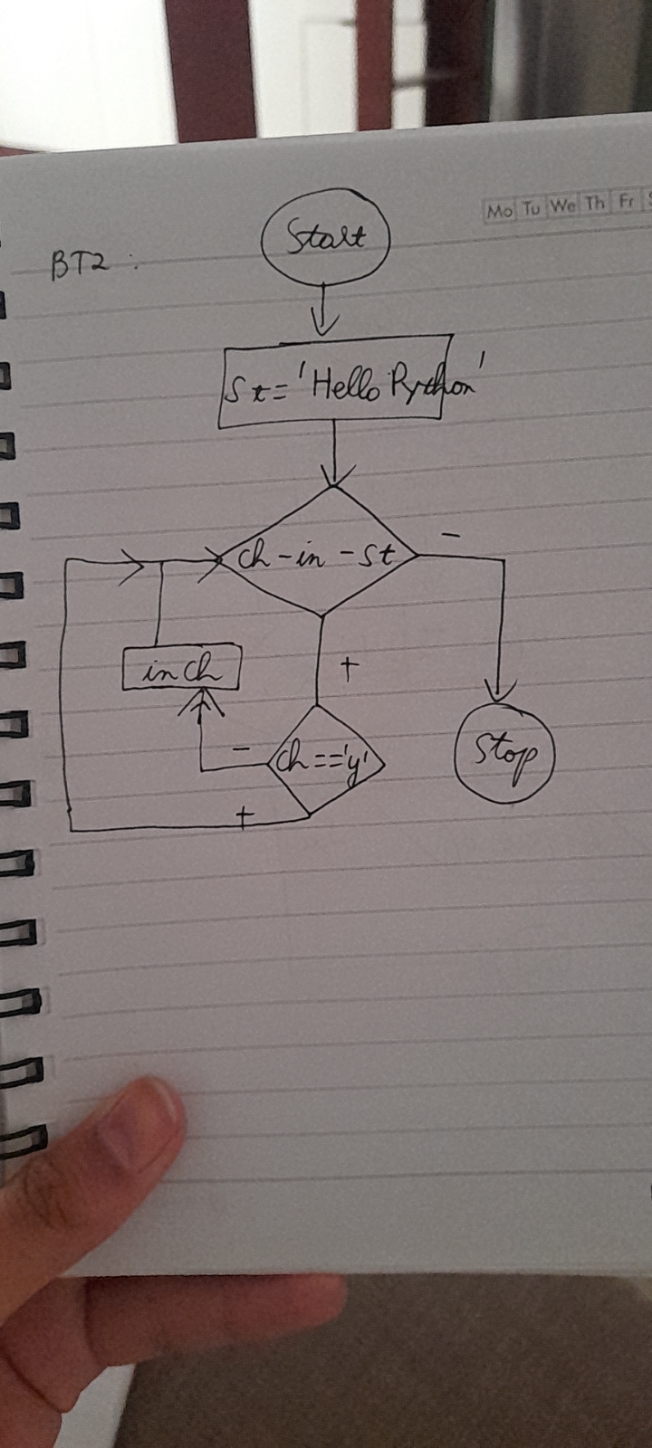 Mo Tu We Th Fr S
Start
BT2 :
St = 'Hello Python'
ch - in - st
-
in ch
+
-
ch == 'y'
Stop
+